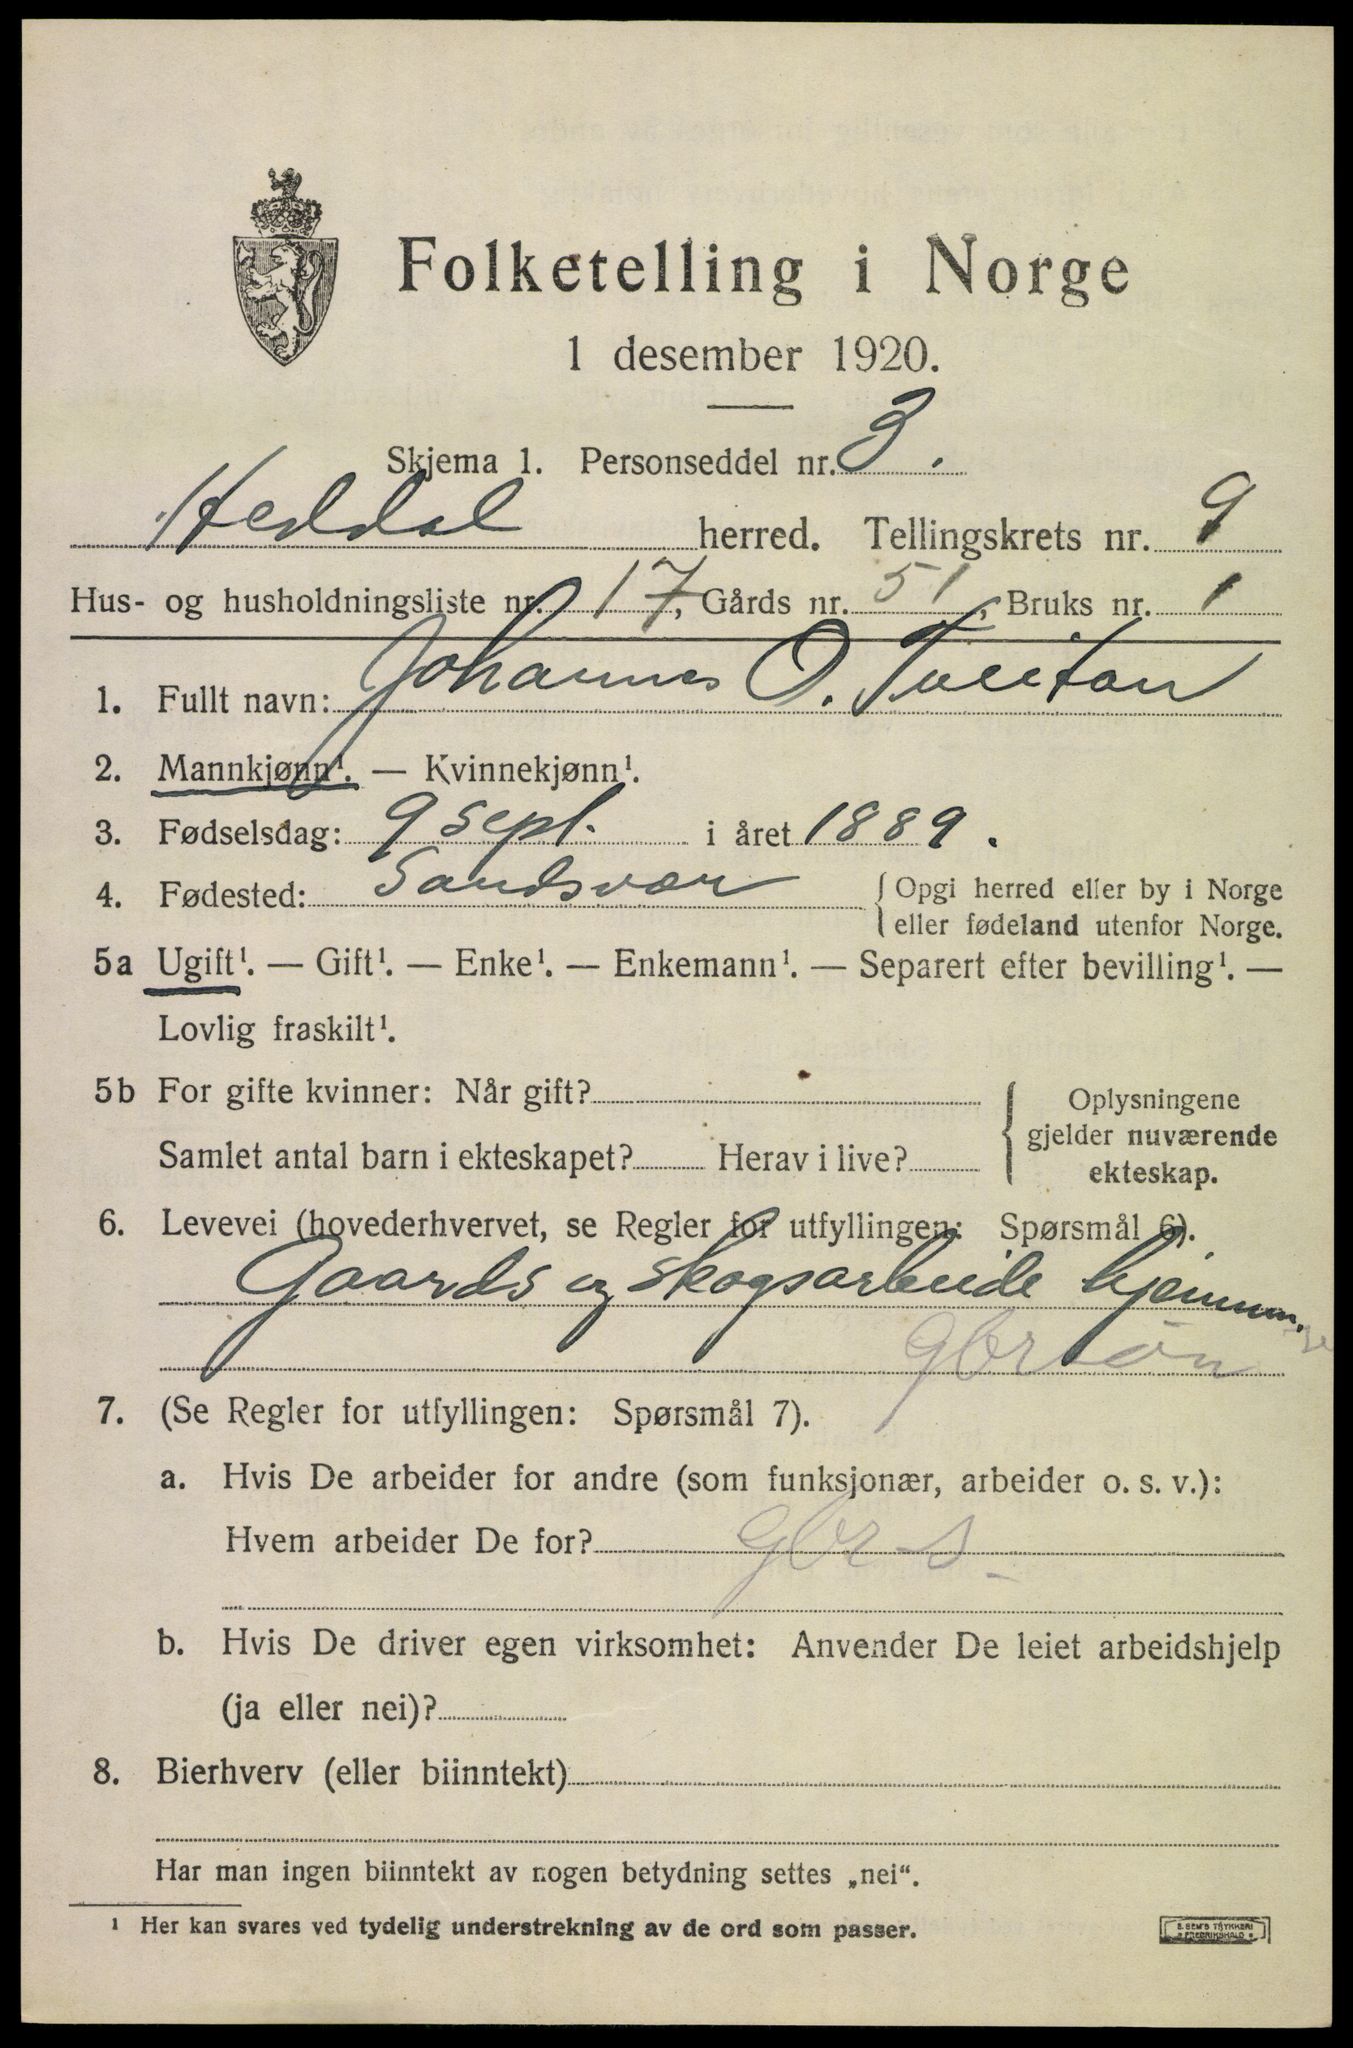 Folketelling i Norge
1 desember 1920.
Skjema 1. Personseddel nr. 3.
Heddal herred. Tellingskrets nr. 9
Hus- og husholdningsliste nr. 17, Gårds nr. 51, Bruks nr. 1
1. Fullt navn: Johannes O. Tveitan
2. Mannkjønn¹. — Kvinnekjønn¹.
3. Fødselsdag: 9 sept. i året 1889.
4. Fødested: Sandsvær { Opgi herred eller by i Norge
eller fødeland utenfor Norge.
5a Ugift¹. — Gift¹. — Enke¹. — Enkemann¹. — Separert efter bevilling¹. —
Lovlig fraskilt¹.
5b For gifte kvinner: Når gift? { Oplysningene
gjelder nuværende
ekteskap.
Samlet antal barn i ekteskapet? Herav i live?
6. Levevei (hovederhvervet, se Regler for utfyllingen: Spørsmål 6).
Gaards og skogsarbeide hjemme.
Gbr søn
7. (Se Regler for utfyllingen: Spørsmål 7).
a. Hvis De arbeider for andre (som funksjonær, arbeider o. s. v.):
Hvem arbeider De for? Gbr s
b. Hvis De driver egen virksomhet: Anvender De leiet arbeidshjelp
(ja eller nei)?
8. Bierhverv (eller biinntekt)
Har man ingen biinntekt av nogen betydning settes „nei“.
¹ Her kan svares ved tydelig understrekning av de ord som passer.
E. SEM'S TRYKKERI
FREDRIKSHALD